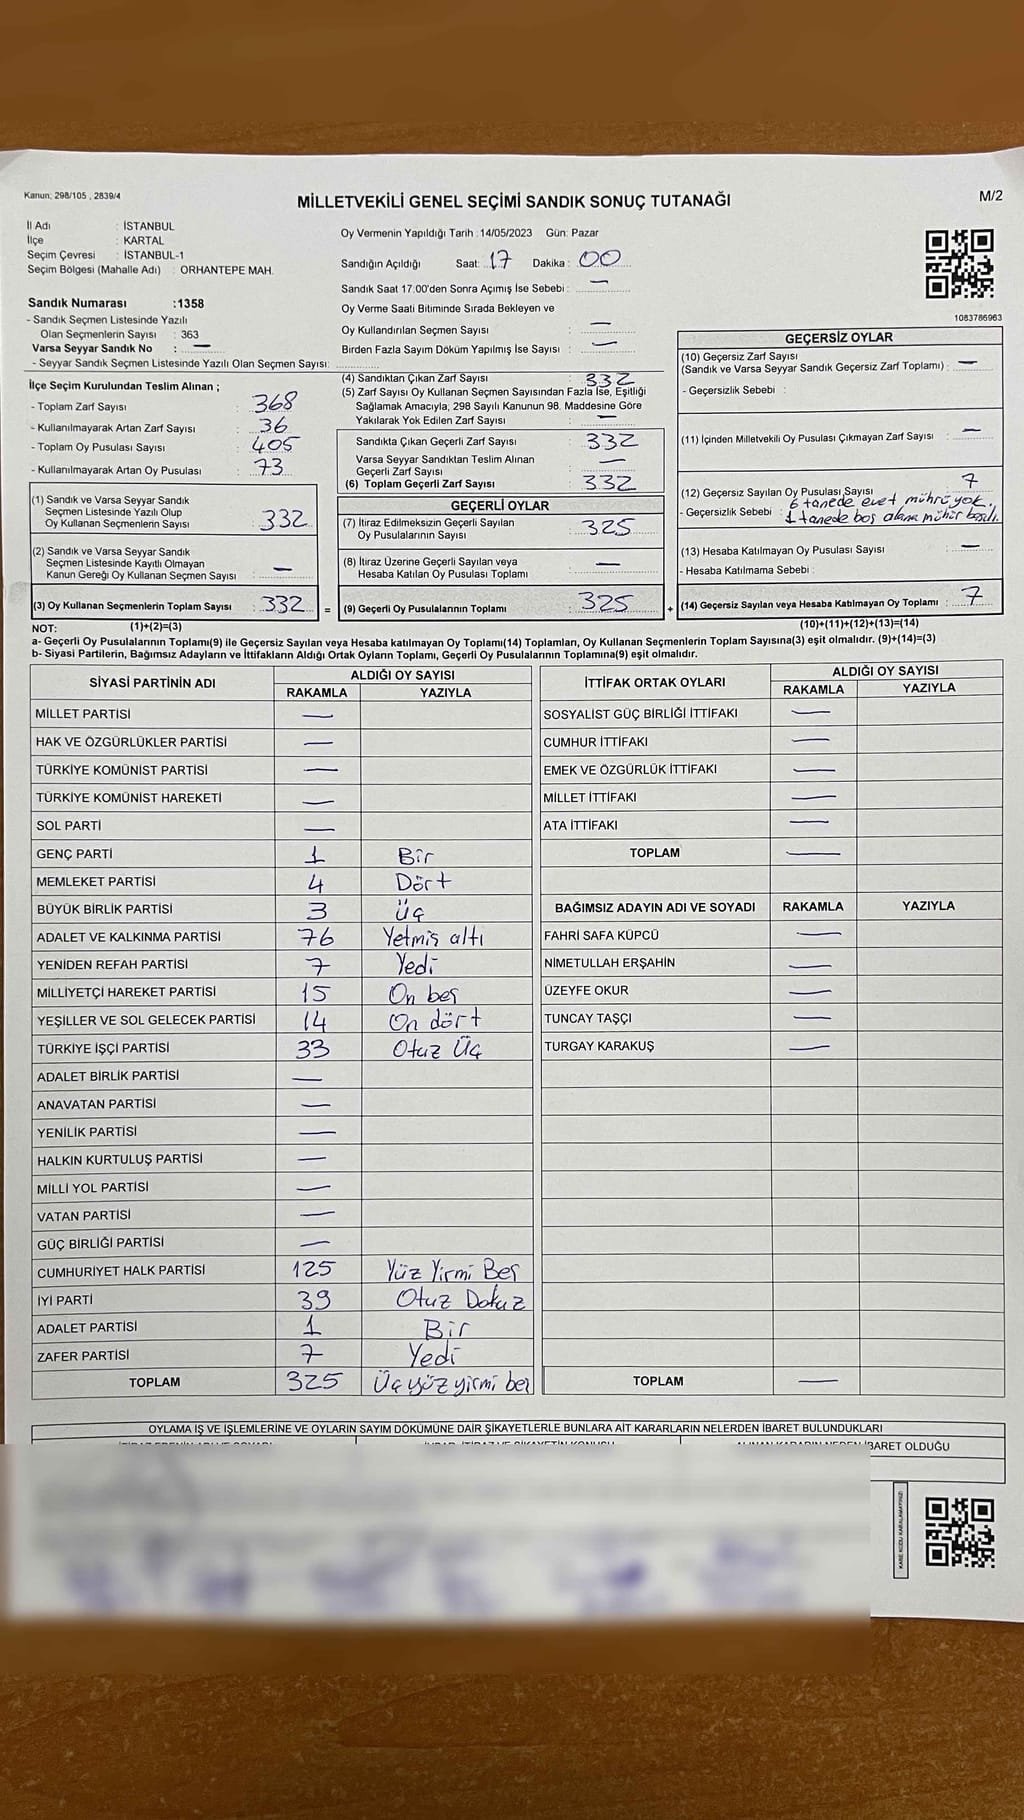 Kanun; 298/105 , 2839/4
MİLLETVEKİLİ GENEL SEÇİMİ SANDIK SONUÇ TUTANAĞI
M/2
İl Adı : İSTANBUL
İlçe : KARTAL
Seçim Çevresi : İSTANBUL-1
Seçim Bölgesi (Mahalle Adı) : ORHANTEPE MAH.
Sandık Numarası :1358
- Sandık Seçmen Listesinde Yazılı
Olan Seçmenlerin Sayısı : 363
Varsa Seyyar Sandık No : —
- Seyyar Sandık Seçmen Listesinde Yazılı Olan Seçmen Sayısı:
Oy Vermenin Yapıldığı Tarih : 14/05/2023 Gün: Pazar
Sandığın Açıldığı Saat: 17 Dakika : 00
Sandık Saat 17.00'den Sonra Açımış İse Sebebi : —
Oy Verme Saati Bitiminde Sırada Bekleyen ve
Oy Kullandırılan Seçmen Sayısı : —
Birden Fazla Sayım Döküm Yapılmış İse Sayısı : —
1083786963
İlçe Seçim Kurulundan Teslim Alınan ;
- Toplam Zarf Sayısı : 368
- Kullanılmayarak Artan Zarf Sayısı : 36
- Toplam Oy Pusulası Sayısı : 405
- Kullanılmayarak Artan Oy Pusulası : 73
(1) Sandık ve Varsa Seyyar Sandık
Seçmen Listesinde Yazılı Olup
Oy Kullanan Seçmenlerin Sayısı : 332
(2) Sandık ve Varsa Seyyar Sandık
Seçmen Listesinde Kayıtlı Olmayan
Kanun Gereği Oy Kullanan Seçmen Sayısı : —
(3) Oy Kullanan Seçmenlerin Toplam Sayısı : 332 =
(4) Sandıktan Çıkan Zarf Sayısı : 332
(5) Zarf Sayısı Oy Kullanan Seçmen Sayısından Fazla İse, Eşitliği
Sağlamak Amacıyla, 298 Sayılı Kanunun 98. Maddesine Göre
Yakılarak Yok Edilen Zarf Sayısı : —
Sandıkta Çıkan Geçerli Zarf Sayısı : 332
Varsa Seyyar Sandıktan Teslim Alınan
Geçerli Zarf Sayısı : —
(6) Toplam Geçerli Zarf Sayısı : 332
GEÇERLİ OYLAR
(7) İtiraz Edilmeksizin Geçerli Sayılan
Oy Pusulalarının Sayısı : 325
(8) İtiraz Üzerine Geçerli Sayılan veya
Hesaba Katılan Oy Pusulası Toplamı : —
(9) Geçerli Oy Pusulalarının Toplamı : 325 +
GEÇERSİZ OYLAR
(10) Geçersiz Zarf Sayısı
(Sandık ve Varsa Seyyar Sandık Geçersiz Zarf Toplamı) : —
- Geçersizlik Sebebi :
(11) İçinden Milletvekili Oy Pusulası Çıkmayan Zarf Sayısı : —
(12) Geçersiz Sayılan Oy Pusulası Sayısı : 7
- Geçersizlik Sebebi : 6 tanede evet mührü yok.
1 tanede boş alana mühür basılı.
(13) Hesaba Katılmayan Oy Pusulası Sayısı : —
- Hesaba Katılmama Sebebi :
(14) Geçersiz Sayılan veya Hesaba Katılmayan Oy Toplamı : 7
NOT: (1)+(2)=(3)
(10)+(11)+(12)+(13)=(14)
a- Geçerli Oy Pusulalarının Toplamı(9) ile Geçersiz Sayılan veya Hesaba katılmayan Oy Toplam(14) Toplamları, Oy Kullanan Seçmenlerin Toplam Sayısına(3) eşit olmalıdır. (9)+(14)=(3)
b- Siyasi Partilerin, Bağımsız Adayların ve İttifakların Aldığı Ortak Oyların Toplamı, Geçerli Oy Pusulalarının Toplamına(9) eşit olmalıdır.
SİYASİ PARTİNİN ADI ALDIĞI OY SAYISI
RAKAMLA YAZIYLA
MİLLET PARTİSİ —
HAK VE ÖZGÜRLÜKLER PARTİSİ —
TÜRKİYE KOMÜNİST PARTİSİ —
TÜRKİYE KOMÜNİST HAREKETİ —
SOL PARTİ —
GENÇ PARTİ 1 Bir
MEMLEKET PARTİSİ 4 Dört
BÜYÜK BİRLİK PARTİSİ 3 üç
ADALET VE KALKINMA PARTİSİ 76 Yetmiş altı
YENİDEN REFAH PARTİSİ 7 Yedi
MİLLİYETÇİ HAREKET PARTİSİ 15 On beş
YEŞİLLER VE SOL GELECEK PARTİSİ 14 On dört
TÜRKİYE İŞÇİ PARTİSİ 33 Otuz Üç
ADALET BİRLİK PARTİSİ —
ANAVATAN PARTİSİ —
YENİLİK PARTİSİ —
HALKIN KURTULUŞ PARTİSİ —
MİLLİ YOL PARTİSİ —
VATAN PARTİSİ —
GÜÇ BİRLİĞİ PARTİSİ —
CUMHURİYET HALK PARTİSİ 125 Yüz Yirmi Beş
İYİ PARTİ 39 Otuz Dokuz
ADALET PARTİSİ 1 Bir
ZAFER PARTİSİ 7 Yedi
TOPLAM 325 Üçyüzyirmi beş
İTTİFAK ORTAK OYLARI ALDIĞI OY SAYISI
RAKAMLA YAZIYLA
SOSYALİST GÜÇ BİRLİĞİ İTTİFAKI —
CUMHUR İTTİFAKI —
EMEK VE ÖZGÜRLÜK İTTİFAKI —
MİLLET İTTİFAKI —
ATA İTTİFAKI —
TOPLAM —
BAĞIMSIZ ADAYIN ADI VE SOYADI RAKAMLA YAZIYLA
FAHRİ SAFA KÜPCÜ —
NİMETULLAH ERŞAHİN —
ÜZEYFE OKUR —
TUNCAY TAŞÇI —
TURGAY KARAKUŞ —
TOPLAM —
OYLAMA İŞ VE İŞLEMLERİNE VE OYLARIN SAYIM DÖKÜMÜNE DAİR ŞİKAYETLERLE BUNLARA AİT KARARLARIN NELERDEN İBARET BULUNDUKLARI
OLDUĞU